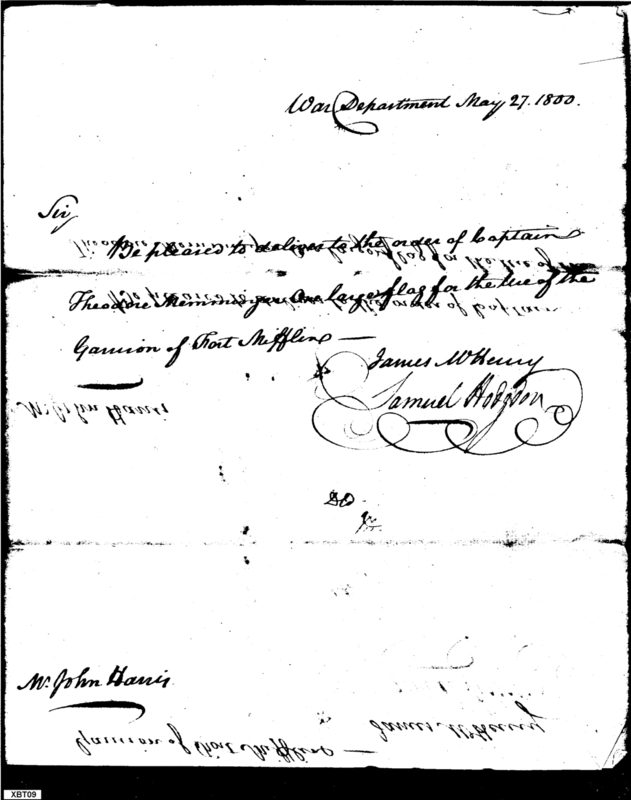 War Department May 27. 1800.
Sir
Be pleased to deliver to the order of Captain
Theodore Memminger One large flag for the Use of the
Garrison of Fort Mifflin —
James McHenry
Samuel Hodgdon
Mr. John Harris
XBT09